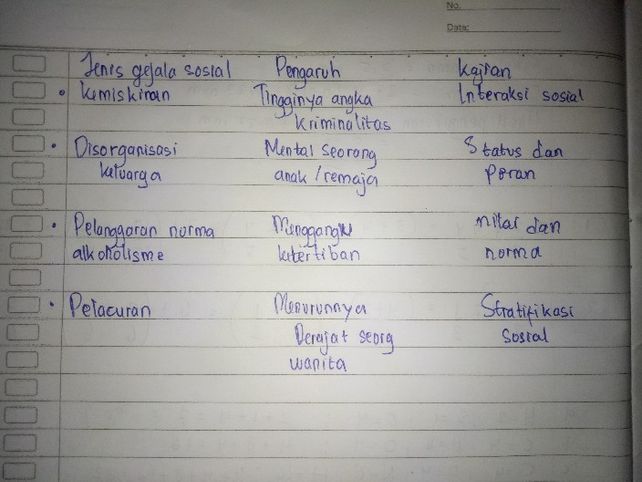 No.
Date:
Jenis gejala sosial Pengaruh Kajian
• Kemiskinan Tingginya angka Interaksi sosial
Kriminalitas
• Disorganisasi Mental seorang Status dan
keluarga anak/remaja peran
• Pelanggaran norma Menggangu nilai dan
alkoholisme ketertiban norma
• Pelacuran Menurunnya Stratifikasi
Derajat seorg sosial
wanita